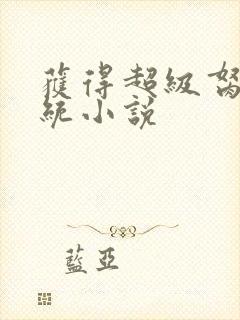 獲得超級
統小說
藍亞